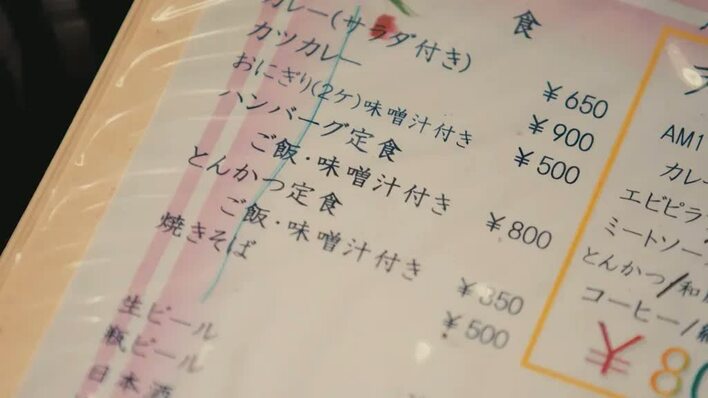 食
カレー(サラダ付き) ¥650
カツカレー ¥900
おにぎり(2ケ)味噌汁付き ¥500
ハンバーグ定食
ご飯・味噌汁付き ¥800
とんかつ定食
ご飯・味噌汁付き
焼きそば ¥500
生ビール
瓶ビール
日本酒
AM1
カレー
エビピラ
ミートソー
とんかつ/和
コーヒー/
¥80